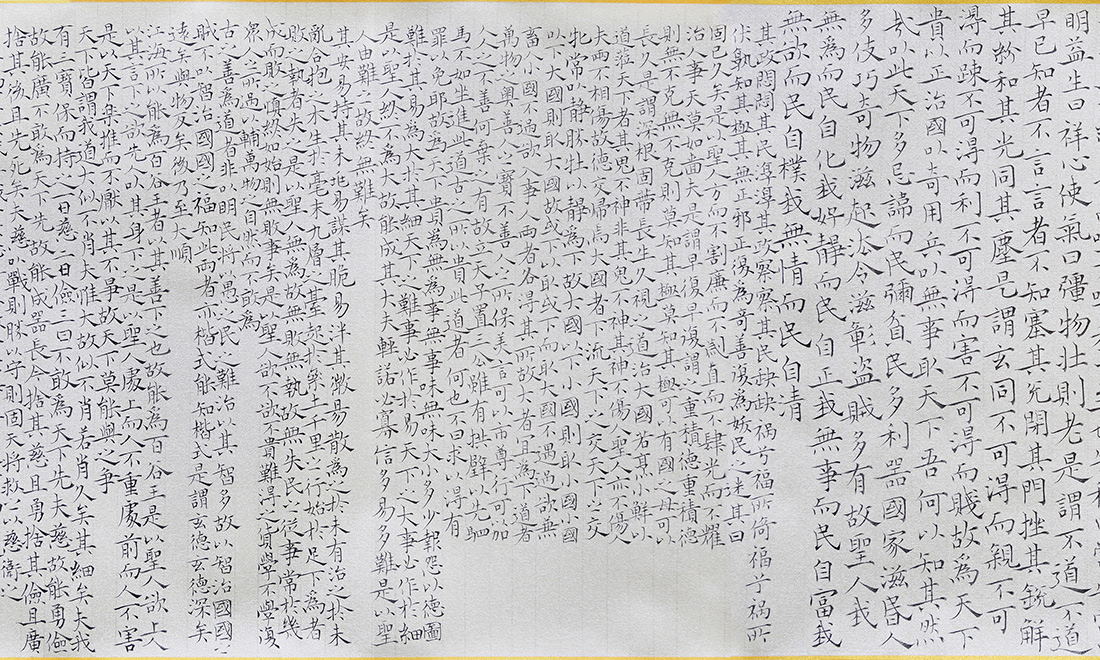 明益生曰祥心使氣曰彊物壯則老是謂不道不道
早已知者不言言者不知塞其兌閉其門挫其銳解
其紛和其光同其塵是謂玄同不可得而親不可
得而踈不可得而利不可得而害不可得而賤故為天下
貴以正治國以奇用兵以無事取天下吾何以知其然
哉以此天下多忌諱而民彌貧民多利器國家滋昏人
多伎巧奇物滋起法令滋彰盜賊多有故聖人我
無為而民自化我好靜而民自正我無事而民自富我
無欲而民自樸我無情而民自清
其政悶悶其民淳淳其政察察其民缺缺禍兮福所倚福兮禍所
伏孰知其極其無正邪正復為奇善復為妖民之迷其日
固已久矣是以聖人方而不割廉而不劌直而不肆光而不耀
治人事天莫如嗇夫是謂早復早復謂之重積德重積德
則無不克無不克則莫知其極莫知其極可以有國之母可以
長久是謂深根固蔕長生久視之道治大國若烹小鮮以
道莅天下者其鬼不神非其鬼不神其神不傷人聖人亦不傷
夫兩不相傷故德交歸焉大國者下流天下之交天下之交
牝常以靜勝牡以靜為下故大國以下小國則取小國小國
以下大國則取大國故或下以取或下而取大國不過欲兼
畜人小國不過欲入事人兩者各得其所欲故大者宜為下道者
萬物之奧善人之寶不善人之所保美言可以市尊行可以加
人人之不善何棄之有故立天子置三公雖有拱璧以先駟
馬不如坐進此道古之所以貴此道者何也不曰求以得有
罪以免耶故為天下貴為無為事無事味無味大小多少報怨以德圖
難於其易為大於其細天下之難事必作於易天下之大事必作於細
是以聖人終不為大故能成其大夫輕諾必寡信多易多難是以聖
人由難之故終無難矣
其安易持其未兆易謀其脆易泮其微易散為之於未有治之於未
亂合抱之木生於毫末九層之臺起於累土千里之行始於足下為者
敗之執者失之是以聖人無為故無敗無執故無失民之從事常於幾
成而敗之慎終如始則無敗事矣是以聖人欲不欲不貴難得之貨學不學復
眾人之所過以輔萬物之自然而不敢為
古之善為道者非以明民將以愚之民之難治以其智多故以智治國國
賊不以智治國國之福知此兩者亦楷式能知楷式是謂玄德玄德深矣
遠矣與物反矣後乃至大順
江海所以能為百谷王者以其善下之也故能為百谷王是以聖人欲上人
以其言下之欲先人以其身下之是以聖人處上而人不重處前而人不害
是以天下樂推而不厭以其不爭故天下莫能與之爭
天下皆謂我道大似不肖夫唯大故似不肖若肖久矣其細矣夫我
有三寶保而持之一曰慈二曰儉三曰不敢為天下先夫慈故能勇儉
故能廣不敢為天下先故能成器長今捨其慈且勇捨其儉且廣
捨其後且先死矣夫慈以戰則勝以守則固天將救之以慈衛之